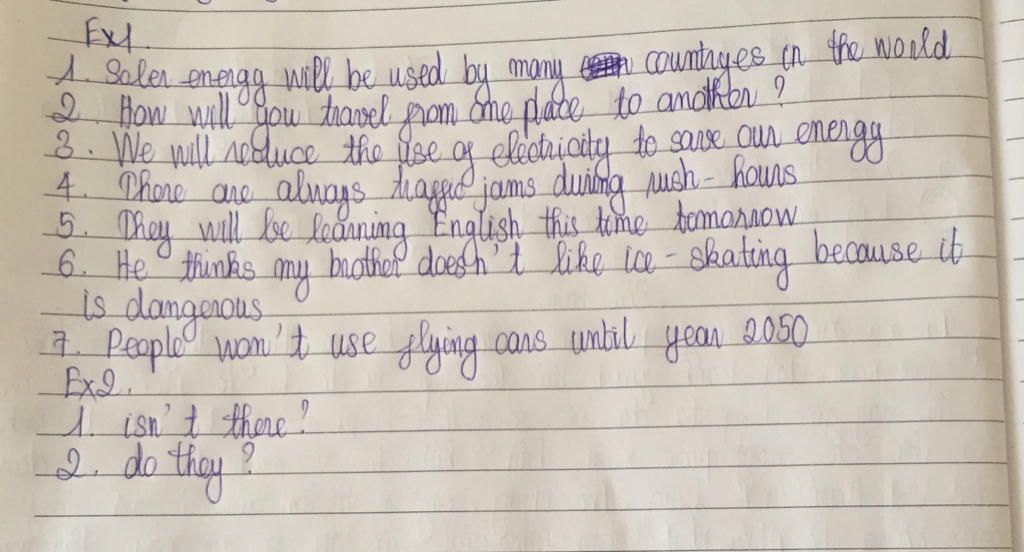 Ex1.
1. Soler energy will be used by many countryes in the world
2. How will you travel from one place to another?
3. We will reduce the use of electricity to save our energy
4. There are always traffic jams during rush - hours
5. They will be learning English this time tomorrow
6. He thinks my brother doesn't like ice - skating because it
is dangerous
7. People won't use flying cars until year 2050
Ex2.
1. isn't there?
2. do they?